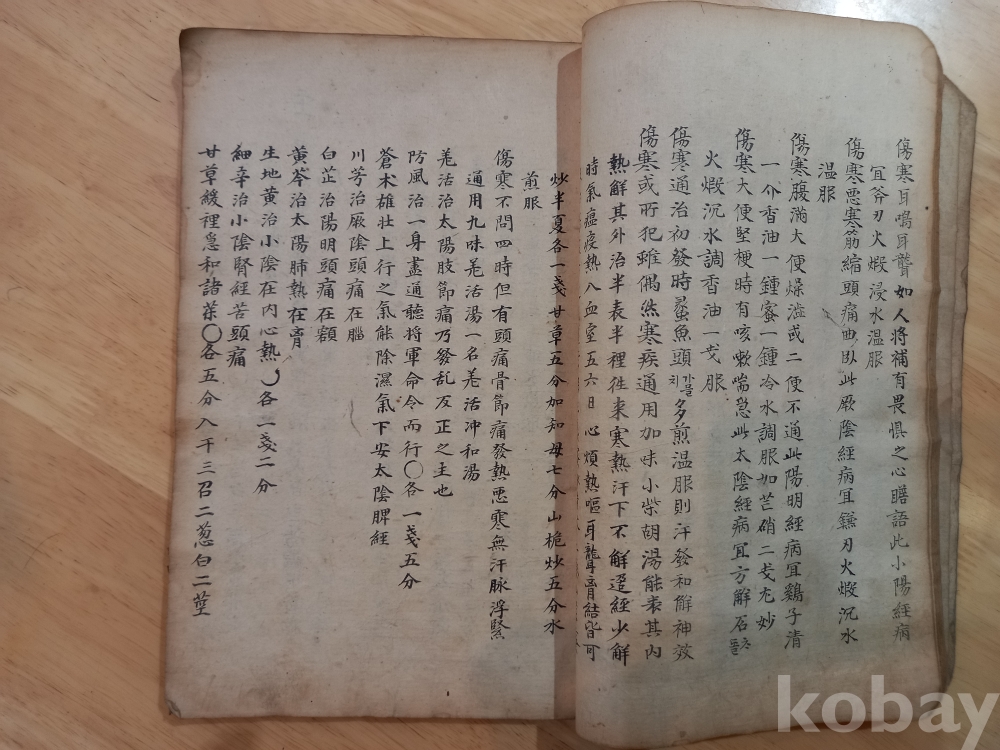 傷寒耳鳴耳聾如人將補有畏惧之心瞎語此小陽經病
宜斧刃火煆浸水温服
傷寒悪寒筋縮頭痛曲臥此厥陰經病宜鎌刃火煆沉水
温服
傷寒腹滿大便燥澁或二便不通此陽明經病宜鷄子清
一介香油一鍾蜜一鍾冷水調服如芒硝二戔尤妙
傷寒大便堅梗時有咳嗽喘急此太陰經病宜方解石
火煆沉水調香油一戔服
傷寒通治初發時蠡魚頭多煎温服則汗發和解神效
傷寒或所犯雖偶然寒疾通用加味小柴胡湯能表其内
熱解其外治半表半裡徃来寒熱汗下不解遷經少解
時氣瘟疫熱入血室五六日心煩熱嘔耳聾膏結皆可
炒半夏各一戔甘草五分加知母七分山梔炒五分水
煎服
傷寒不問四時但有頭痛骨節痛發熱悪寒無汗脉浮緊
通用九味羌活湯一名羌活冲和湯
羌活治太陽肢節痛乃發乱反正之主也
防風治一身盡通聽将軍命令而行〇各一戔五分
蒼术雄壮上行之氣能除濕氣下安太陰脾經
川芎治厥陰頭痛在腦
白芷治陽明頭痛在額
黄芩治太陽肺熱在膏
生地黄治小陰在内心熱 各一戔二分
細辛治小陰腎經苦頭痛
甘草緩裡急和諸薬〇各五分入干三召二葱白二莖
kobay